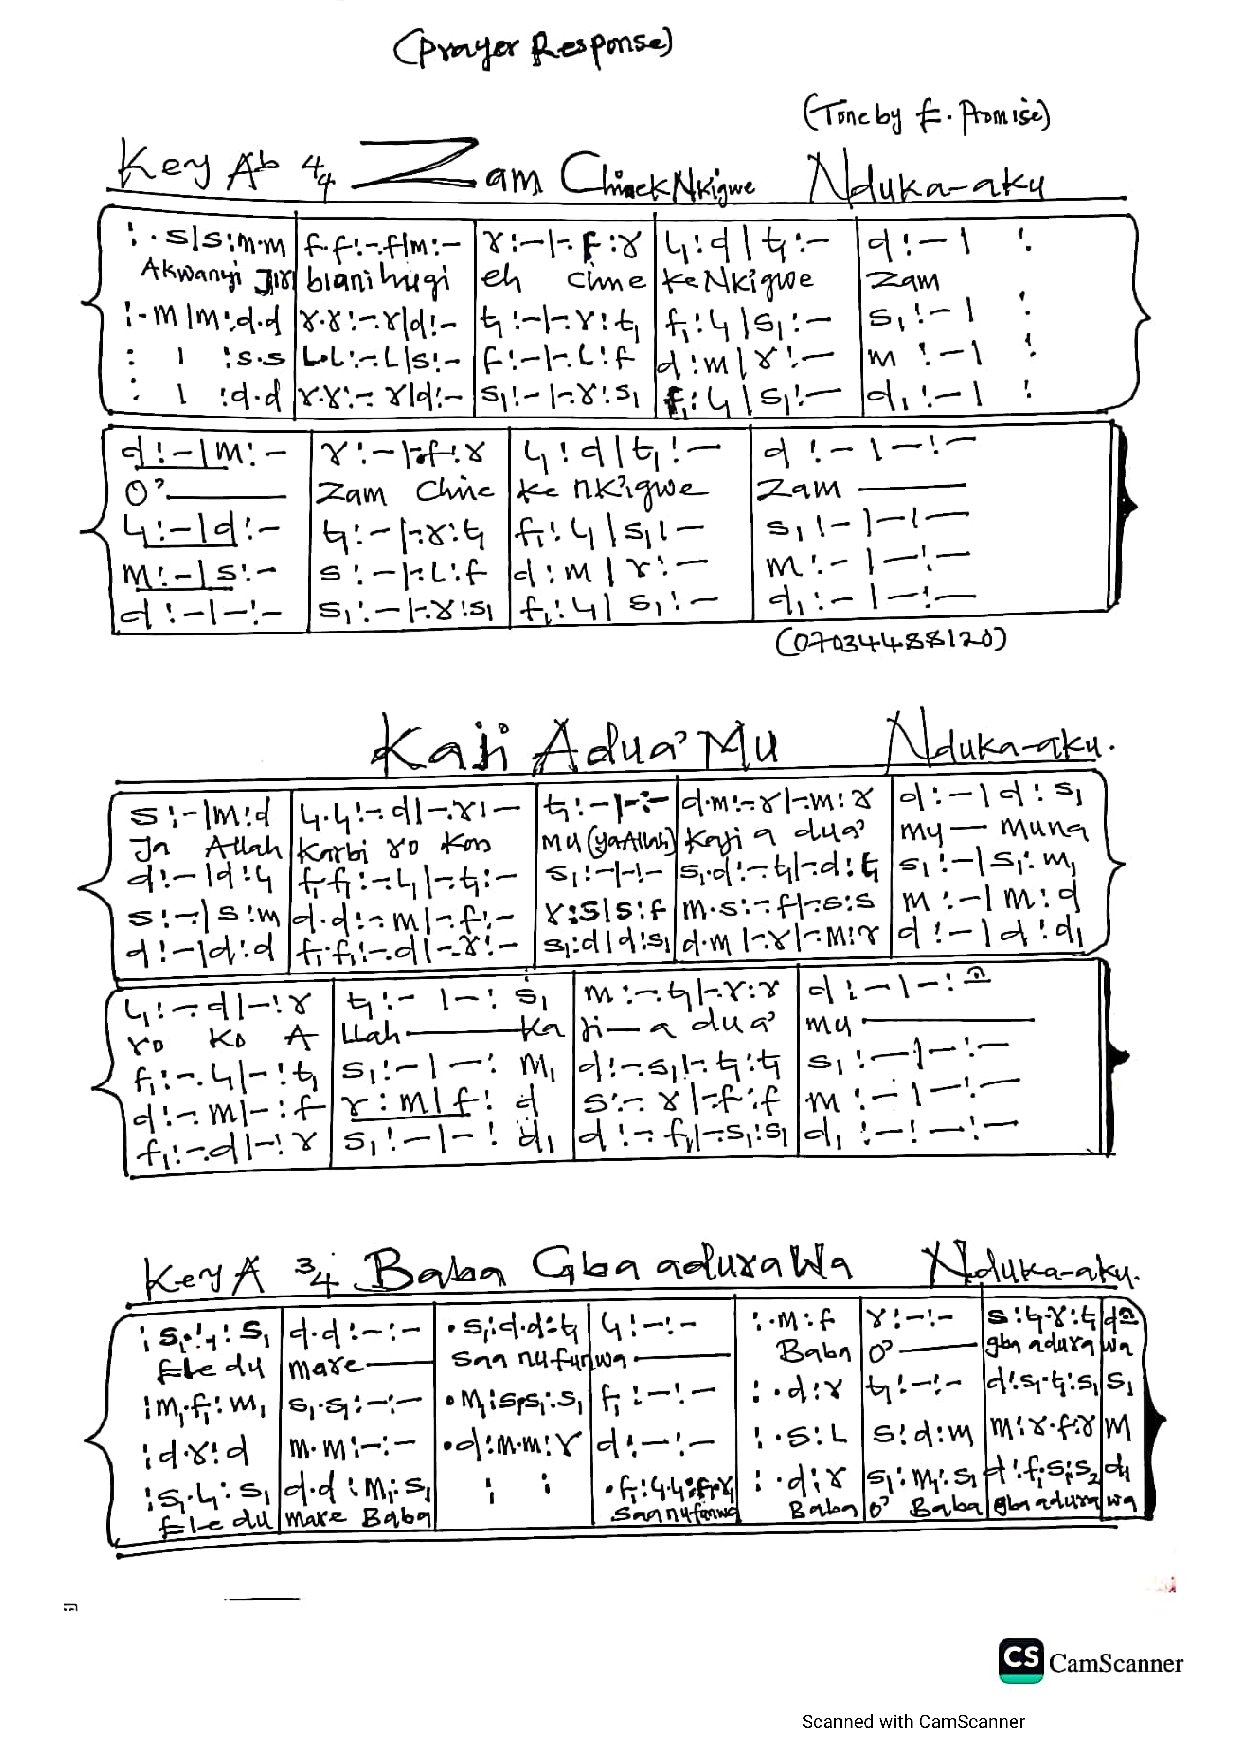 (Prayer Response)
(Tone by E. Promise)
Key Ab 4/4 Zam Chineck Nkigwe Nduka-aku
: .s|s:m.m f.f:-.f|m:- r:-|-.f:r l₁:d|t₁:- d:-| :
Akwanyi Jiri biani hugi eh cime ke Nkigwe Zam
:.m|m:d.d r.r:-.r|d:- t₁:-|-.r:t₁ f₁:l₁|s₁:- s₁:-| :
: | :s.s L.L:-.L|s:- f:-|-.L:f d:m|r:- m:-| :
: | :d.d r.r:-.r|d:- s₁:-|-.r:s₁ f₁:l₁|s₁:- d₁:-| :
d:-|m:- r:-|-.f:r l₁:d|t₁:- d:-|-:-
O' Zam Chine ke nkigwe Zam
l₁:-|d:- t₁:-|-.r:t₁ f₁:l₁|s₁:- s₁:-|-:-
m:-|s:- s:-|-.L:f d:m|r:- m:-|-:-
d:-|-:- s₁:-|-.r:s₁ f₁:l₁|s₁:- d₁:-|-:-
(07034488120)
Kaji Adua' Mu Nduka-aku.
s:-|m:d l₁.l₁:-.d|-.r:- t₁:-|-:- d.m:-.r|-.m:r d:-|d:s₁
Ja Allah Karbi ro Kon mu (ya Allah) Kaji a dua' my— Muna
d:-|d:l₁ f₁.f₁:-.l₁|-.t₁:- s₁:-|-:- s₁.d:-.t₁|-.d:t₁ s₁:-|s₁:m₁
s:-|s:m d.d:-.m|-.f:- r:s|s:f m.s:-.f|-.s:s m:-|m:d
d:-|d:d f₁.f₁:-.d|-.r:- s₁:d|d:s₁ d.m|-.r|-.m:r d:-|d:d₁
l₁:-.d|-:r t₁:-|-:s₁ m:-.t₁|-.r:r d:-|-:-
ro Ko A LLah Ka ji—a dua' my
f₁:-.l₁|-:t₁ s₁:-|-:m₁ d:-.s₁|-.t₁:t₁ s₁:-|-:-
d:-.m|-:f r:m|f:d s:-.r|-.f:f m:-|-:-
f₁:-.d|-:r s₁:-|-:d₁ d:-.f₁|-.s₁:s₁ d₁:-:-:-
Key A 3/4 Baba Gba adura Wa Nduka-aku.
:s₁.l₁:s₁ d.d:-:- .s₁:d.d:t₁ l₁:-:- :.m:f r:-:- s:l₁.r:t₁ d
Ele du mare Saa nu funwa Baba O' gba adura wa
:m₁.f₁:m₁ s₁.s₁:-:- .m₁:s₁.s₁:s₁ f₁:-:- :.d:r t₁:-:- d:s₁.t₁:s₁ s₁
:d.r:d m.m:-:- .d:m.m:r d:-:- :.s:L s:d:m m:r.f:r m
:s₁.l₁:s₁ d.d:m₁:s₁ : : .f₁:l₁.l₁:f₁.r₁ :.d:r s₁:m₁:s₁ d:f₁.s₁:s₂ d₁
Ele du mare Baba Saa nu funwa Baba O' Baba gba adura wa
CS CamScanner
Scanned with CamScanner